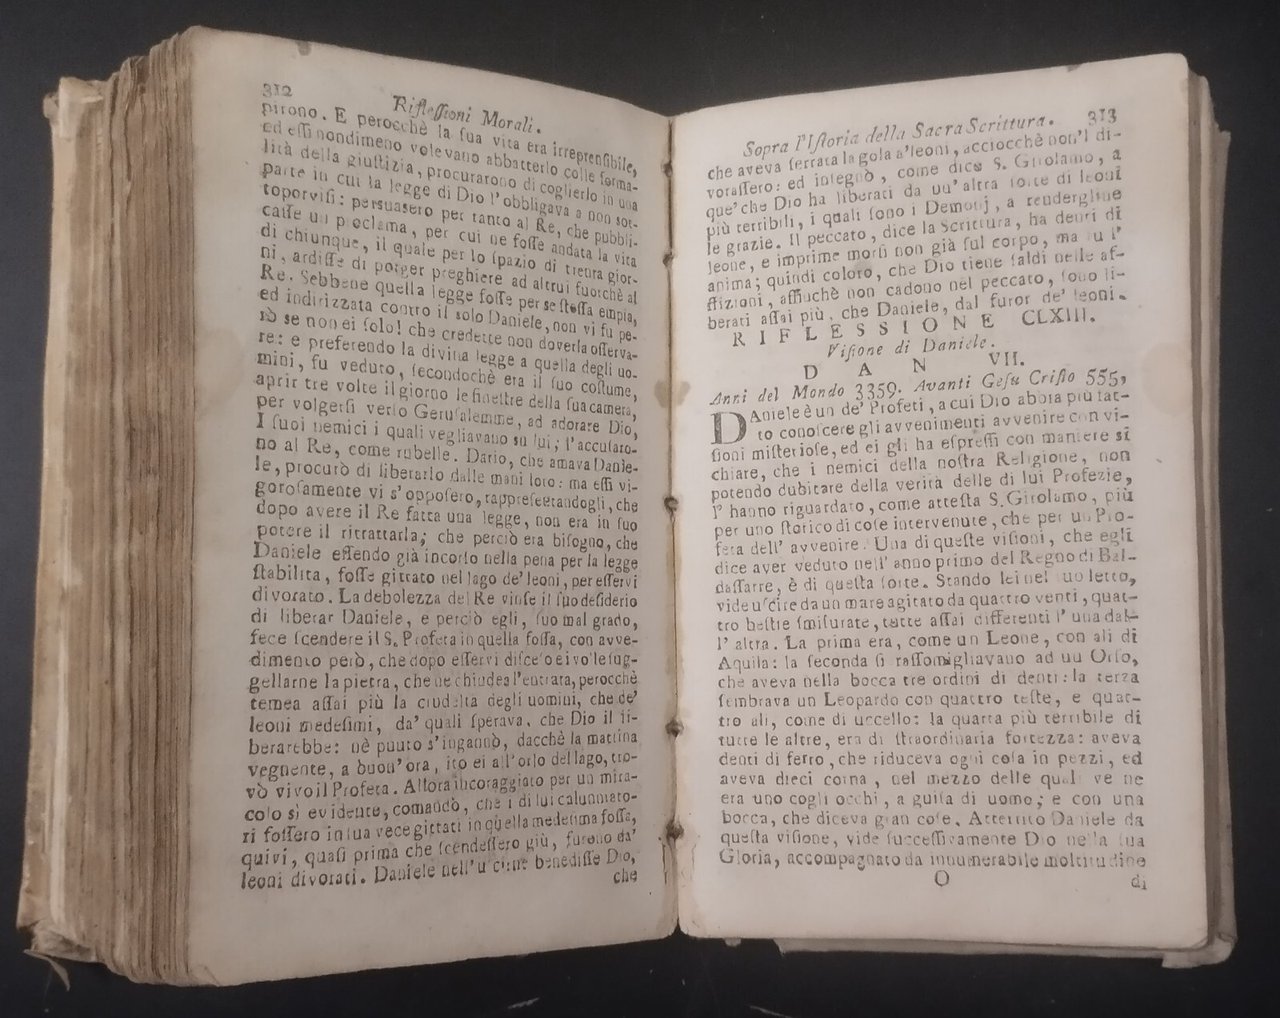 312
Rifleſſioni Morali.
pirono. E perocchè la ſua vita era irreprenſibile,
ed eſſi nondimeno volevano abbatterlo colle forma-
lità della giuſtizia, procurarono di coglierlo in una
parte in cui la legge di Dio l'obbligava a non sot-
toporviſi: perſuaſero per tanto al Re, che pubbli-
caſſe un proclama, per cui ne foſſe andata la vita
di chiunque, il quale per lo ſpazio di trenta gior-
ni, ardiſſe di porger preghiere ad altrui fuorchè al
Re. Sebbene quella legge foſſe per se ſteſſa empia,
ed indirizzata contro il solo Daniele, non vi fu pe-
rò se non ei ſolo! che credette non doverla oſſerva-
re: e preferendo la divina legge a quella degli uo-
mini, fu veduto, ſecondochè era il ſuo coſtume,
aprir tre volte il giorno le fineſtre della ſua camera,
per volgerſi verſo Geruſalemme, ad adorare Dio,
I ſuoi nemici i quali vegliavano su lui; l'accuſaro-
no al Re, come rubelle. Dario, che amava Danie-
le, procurò di liberarlo dalle mani loro: ma eſſi vi-
goroſamente vi s' oppoſero, rappreſentandogli, che
dopo avere il Re fatta una legge, non era in ſuo
potere il ritrattarla; che perciò era biſogno, che
Daniele eſſendo già incorſo nella pena per la legge
ſtabilita, foſſe gittato nel lago de' leoni, per eſſervi
divorato. La debolezza del Re vinſe il ſuo deſiderio
di liberar Daniele, e perciò egli, ſuo mal grado,
fece ſcendere il S. Profeta in quella foſſa, con avve-
dimento però, che dopo eſſervi diſceſo ei volle ſug-
gellarne la pietra, che ne chiudea l'entrata, perocchè
temea aſſai più la crudeltà degli uomini, che de'
leoni medeſimi, da' quali ſperava, che Dio il li-
berarebbe: nè punto s'ingannò, dacchè la mattina
vegnente, a buon' ora, ito ei all'orlo del lago, tro-
vò vivo il Profeta. Allora incoraggiato per un mira-
colo sì evidente, comandò, che i di lui calunniato-
ri foſſero in ſua vece gittati in quella medeſima foſſa,
quivi, quaſi prima che ſcendeſſero giù, furono da'
leoni divorati. Daniele nell'uſcirne benediſſe Dio,
che
Sopra l'Iſtoria della Sacra Scrittura. 313
che aveva ſerrata la gola a'leoni, acciocchè non'l di-
voraſſero: ed inſegnò, come dice S. Girolamo, a
que' che Dio ha liberati da un' altra ſorte di leoni
più terribili, i quali ſono i Demonj, a rendergline
le grazie. Il peccato, dice la Scrittura, ha denti di
leone, e imprime morſi non già ſul corpo, ma su l'
anima; quindi coloro, che Dio tiene ſaldi nelle af-
flizioni, affinchè non cadono nel peccato, ſono li-
berati aſſai più, che Daniele, dal furor de' leoni.
RIFLESSIONE CLXIII.
Viſione di Daniele.
DAN VII.
Anni del Mondo 3359. Avanti Geſu Criſto 555,
DAniele è un de' Profeti, a cui Dio abbia più fat-
to conoſcere gli avvenimenti avvenire con vi-
ſioni miſterioſe, ed ei gli ha eſpreſſi con maniere sì
chiare, che i nemici della noſtra Religione, non
potendo dubitare della verità delle di lui Profezie,
l' hanno riguardato, come atteſta S. Girolamo, più
per uno ſtorico di coſe intervenute, che per un Pro-
feta dell' avvenire. Una di queſte viſioni, che egli
dice aver veduto nell' anno primo del Regno di Bal-
daſſarre, è di queſta ſorte. Stando lei nel ſuo letto,
vide uſcire da un mare agitato da quattro venti, quat-
tro beſtie ſmiſurate, tutte aſſai differenti l' una dal-
l' altra. La prima era, come un Leone, con ali di
Aquila: la ſeconda ſi raſſomigliavano ad un Orſo,
che aveva nella bocca tre ordini di denti: la terza
ſembrava un Leopardo con quattro teſte, e quat-
tro ali, come di uccello: la quarta più terribile di
tutte le altre, era di ſtraordinaria fortezza: aveva
denti di ferro, che riduceva ogni coſa in pezzi, ed
aveva dieci corna, nel mezzo delle quali ve ne
era uno cogli occhi, a guiſa di uomo; e con una
bocca, che diceva gran coſe. Atterrito Daniele da
queſta viſione, vide ſucceſſivamente Dio nella ſua
Gloria, accompagnato da innumerabile moltitudine
O di